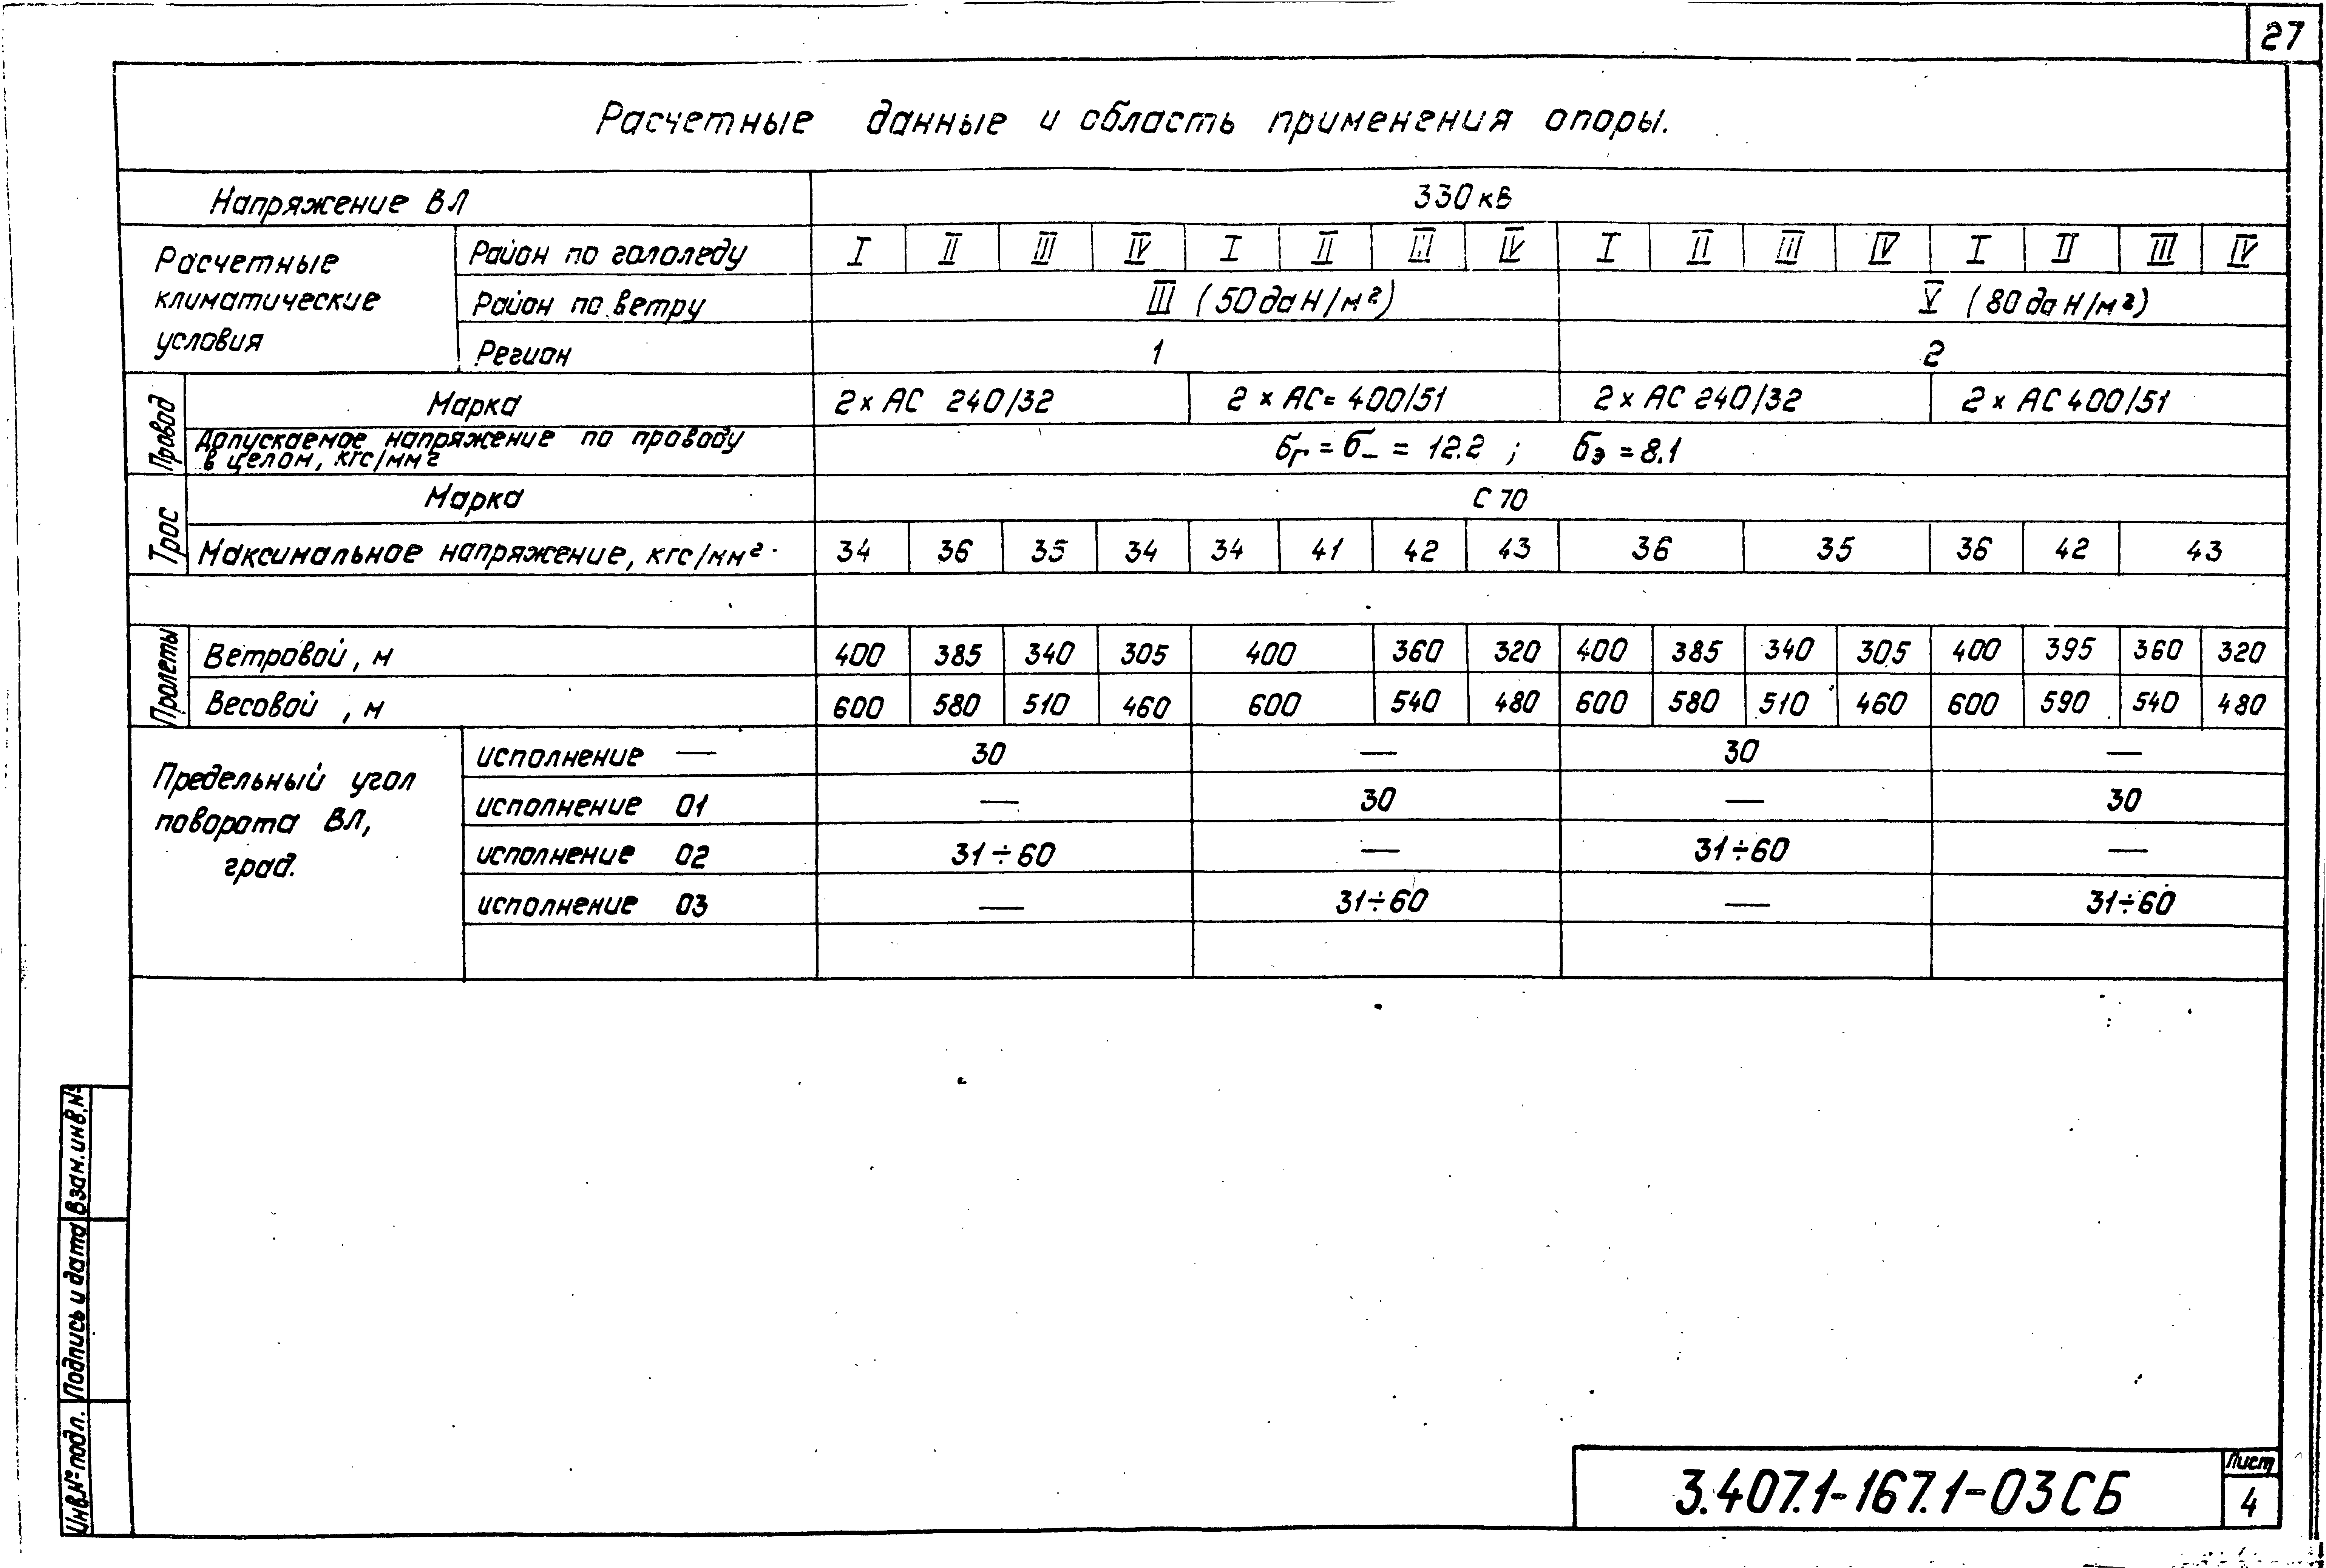 27
Расчетные данные и область применения опоры.
Напряжение ВЛ 330 кВ
Расчетные климатические условия
Район по гололеду I II III IV I II III IV I II III IV I II III IV
Район по ветру III (50 даН/м²) V (80 даН/м²)
Регион 1 2
Провод
Марка 2 × АС 240/32 2 × АС= 400/51 2 × АС 240/32 2 × АС 400/51
Допускаемое напряжение по проводу
в целом, кгс/мм²
бг = б_ = 12.2 ; бэ = 8.1
Трос
Марка С 70
Максимальное напряжение, кгс/мм² 34 36 35 34 34 41 42 43 36 35 36 42 43
Пролеты
Ветровой, м 400 385 340 305 400 360 320 400 385 340 305 400 395 360 320
Весовой, м 600 580 510 460 600 540 480 600 580 510 460 600 590 540 480
Предельный угол
поворота ВЛ,
град.
исполнение — 30 — 30 —
исполнение 01 — 30 — 30
исполнение 02 31÷60 — 31÷60 —
исполнение 03 — 31÷60 — 31÷60
Взам. инв. №
Подпись и дата
Инв.№ подл.
3.407.1-167.1-03СБ
Лист
4